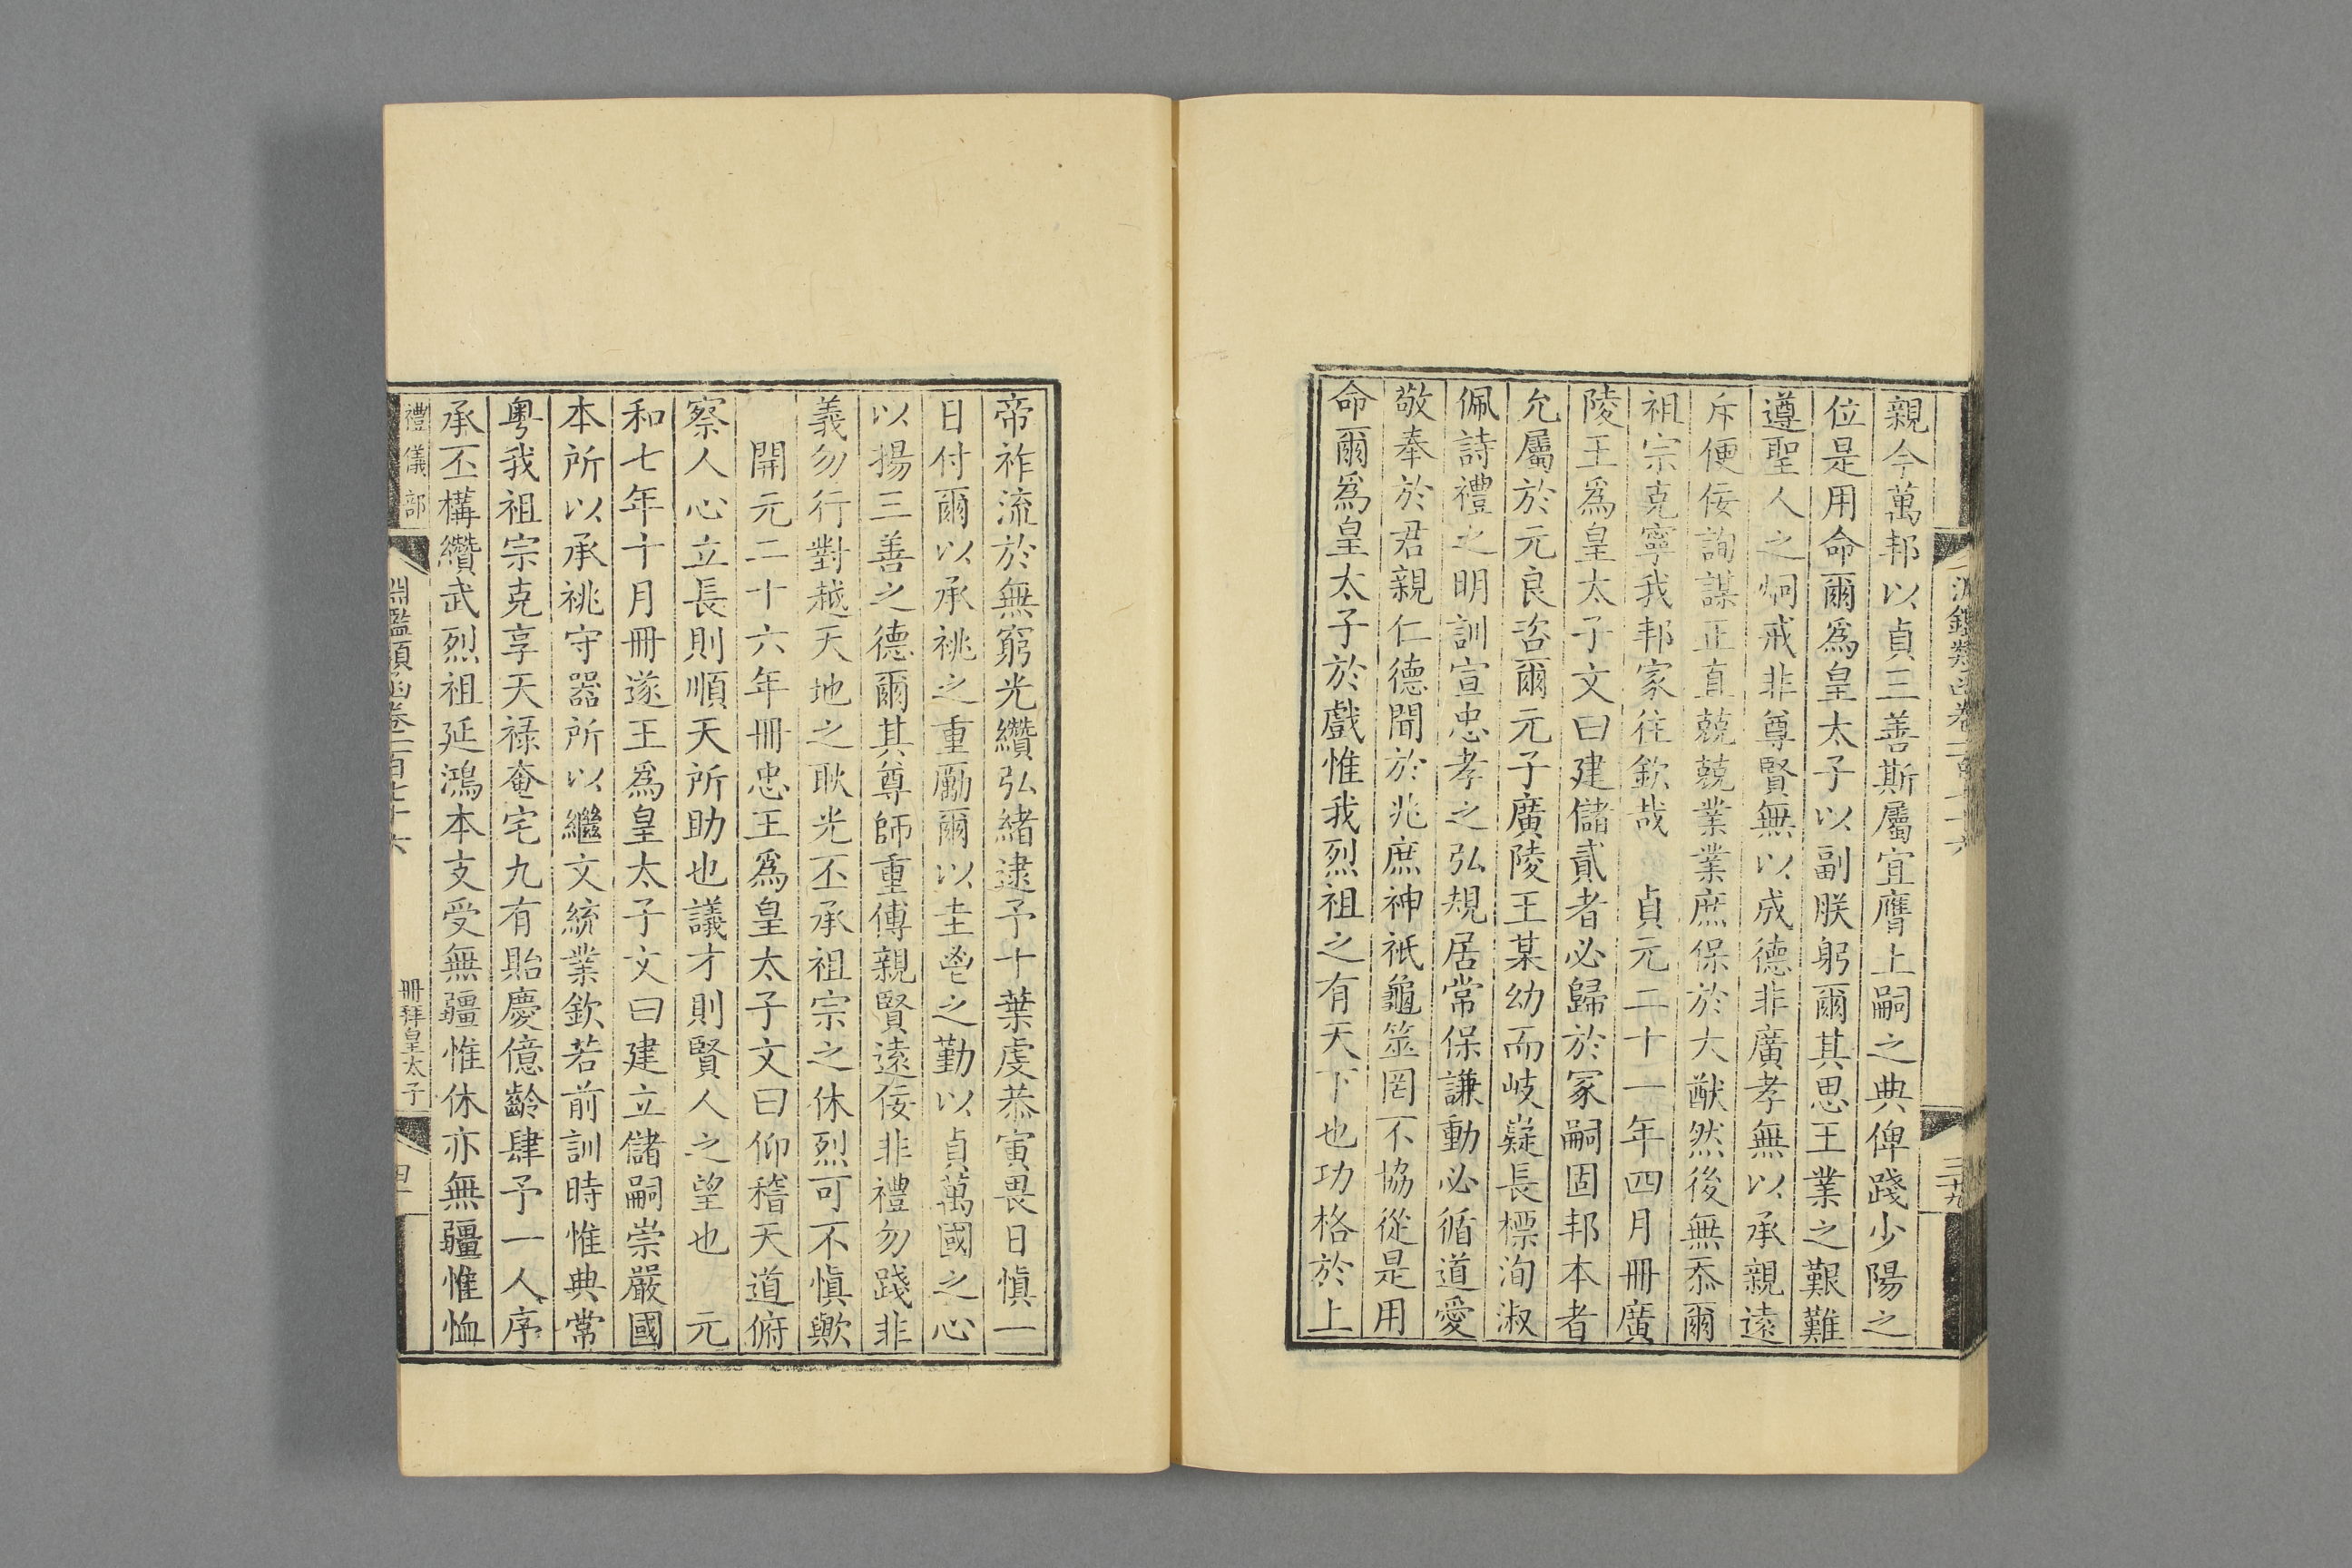 親今萬邦以貞三善斯屬宜膺上嗣之典俾踐少陽之
位是用命爾爲皇太子以副朕躬爾其思王業之艱難
遵聖人之炯戒非尊賢無以成德非廣孝無以承親遠
斥便佞詢謀正直兢兢業業庶保於大猷然後無忝爾
祖宗克寧我邦家往欽哉 貞元二十一年四月冊廣
陵王爲皇太子文曰建儲貳者必歸於冢嗣固邦本者
允屬於元良咨爾元子廣陵王某幼而岐嶷長標洵淑
佩詩禮之明訓宣忠孝之弘規居常保謙動必循道愛
敬奉於君親仁德聞於兆庶神祇龜筮罔不協從是用
命爾爲皇太子於戲惟我烈祖之有天下也功格於上
帝祚流於無窮光纘弘緒逮予十葉虔恭寅畏日愼一
日付爾以承祧之重勵爾以主鬯之勤以貞萬國之心
以揚三善之德爾其尊師重傅親賢遠佞非禮勿踐非
義勿行對越天地之耿光丕承祖宗之休烈可不愼歟
開元二十六年冊忠王爲皇太子文曰仰稽天道俯
察人心立長則順天所助也議才則賢人之望也 元
和七年十月冊遂王爲皇太子文曰建立儲嗣崇嚴國
本所以承祧守器所以繼文統業欽若前訓時惟典常
粵我祖宗克享天祿奄宅九有貽慶億齡肆予一人序
承丕構纘武烈祖延鴻本支受無疆惟休亦無疆惟恤
禮儀部
淵鑑類函卷二百七十六
冊拜皇太子